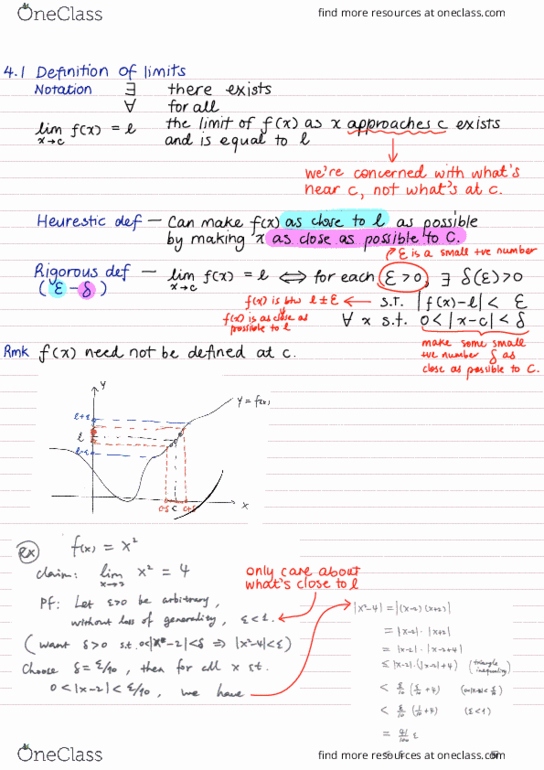 OneClass
find more resources at oneclass.com
4.1 Definition of limits
Notation ∃ there exists
∀ for all
lim x→c f(x) = l the limit of f(x) as x approaches c exists
and is equal to l
we're concerned with what's
near c, not what's at c.
Heurestic def — Can make f(x) as close to l as possible
by making x as close as possible to c.
ε is a small +ve number
Rigorous def — lim x→c f(x) = l ⟺ for each ε>0, ∃ δ(ε)>0
(ε-δ)
f(x) is btw l ± ε ← s.t. |f(x)-l| < ε
f(x) is as close as
possible to l
∀ x s.t. 0<|x-c|<δ
make some small
+ve number δ as
close as possible to c.
Rmk f(x) need not be defined at c.
y
l+ε
y = f(x)
l
l-ε
c-δ c c+δ
x
Ex f(x) = x²
claim: lim x→2 x² = 4
only care about
what's close to l
Pf: Let ε>0 be arbitrary,
without loss of generality, ε<1.
(want δ>0 s.t. 0<|x-2|<δ ⇒ |x²-4|<ε)
Choose δ = ε/10, then for all x st.
0<|x-2|<ε/10, we have
|x²-4| = |(x-2)(x+2)|
= |x-2|·|x+2|
= |x-2|·|x-2+4|
≤ |x-2|·(|x-2|+4) (triangle
inequality)
< ε/10 (ε/10 +4)
< ε/10 (1/10 +4) (ε<1)
= 41/100 ε
OneClass
find more resources at oneclass.com